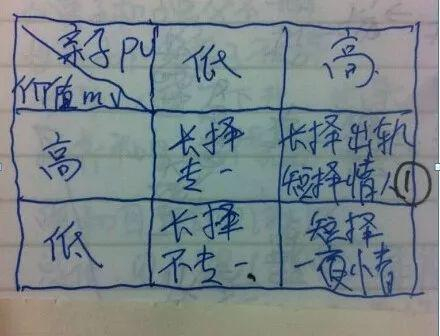 亲子pu
低
高
价值mv
高
长择
专一
长择出轨
短择情人①
低
长择
不专一、
短择
一夜情